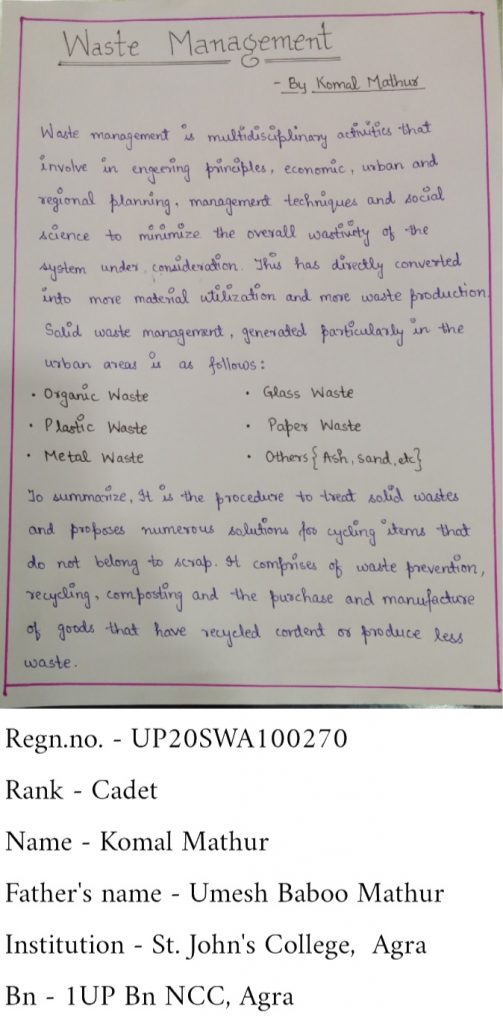 Waste Management
- By Komal Mathur
Waste management is multidisciplinary activities that
involve in engerring principles, economic, urban and
regional planning, management techniques and social
science to minimize the overall wastivity of the
system under consideration. This has directly converted
into more material utilization and more waste production.
Solid waste management, generated particularly in the
urban areas is as follows:
• Organic Waste
• Glass Waste
• Plastic Waste
• Paper Waste
• Metal Waste
• Others{Ash, sand, etc}
To summarize, It is the procedure to treat solid wastes
and proposes numerous solutions for cycling items that
do not belong to scrap. It comprises of waste prevention,
recycling, composting and the purchase and manufacture
of goods that have recycled content or produce less
waste.
Regn.no. - UP20SWA100270
Rank - Cadet
Name - Komal Mathur
Father's name - Umesh Baboo Mathur
Institution - St. John's College, Agra
Bn - 1UP Bn NCC, Agra